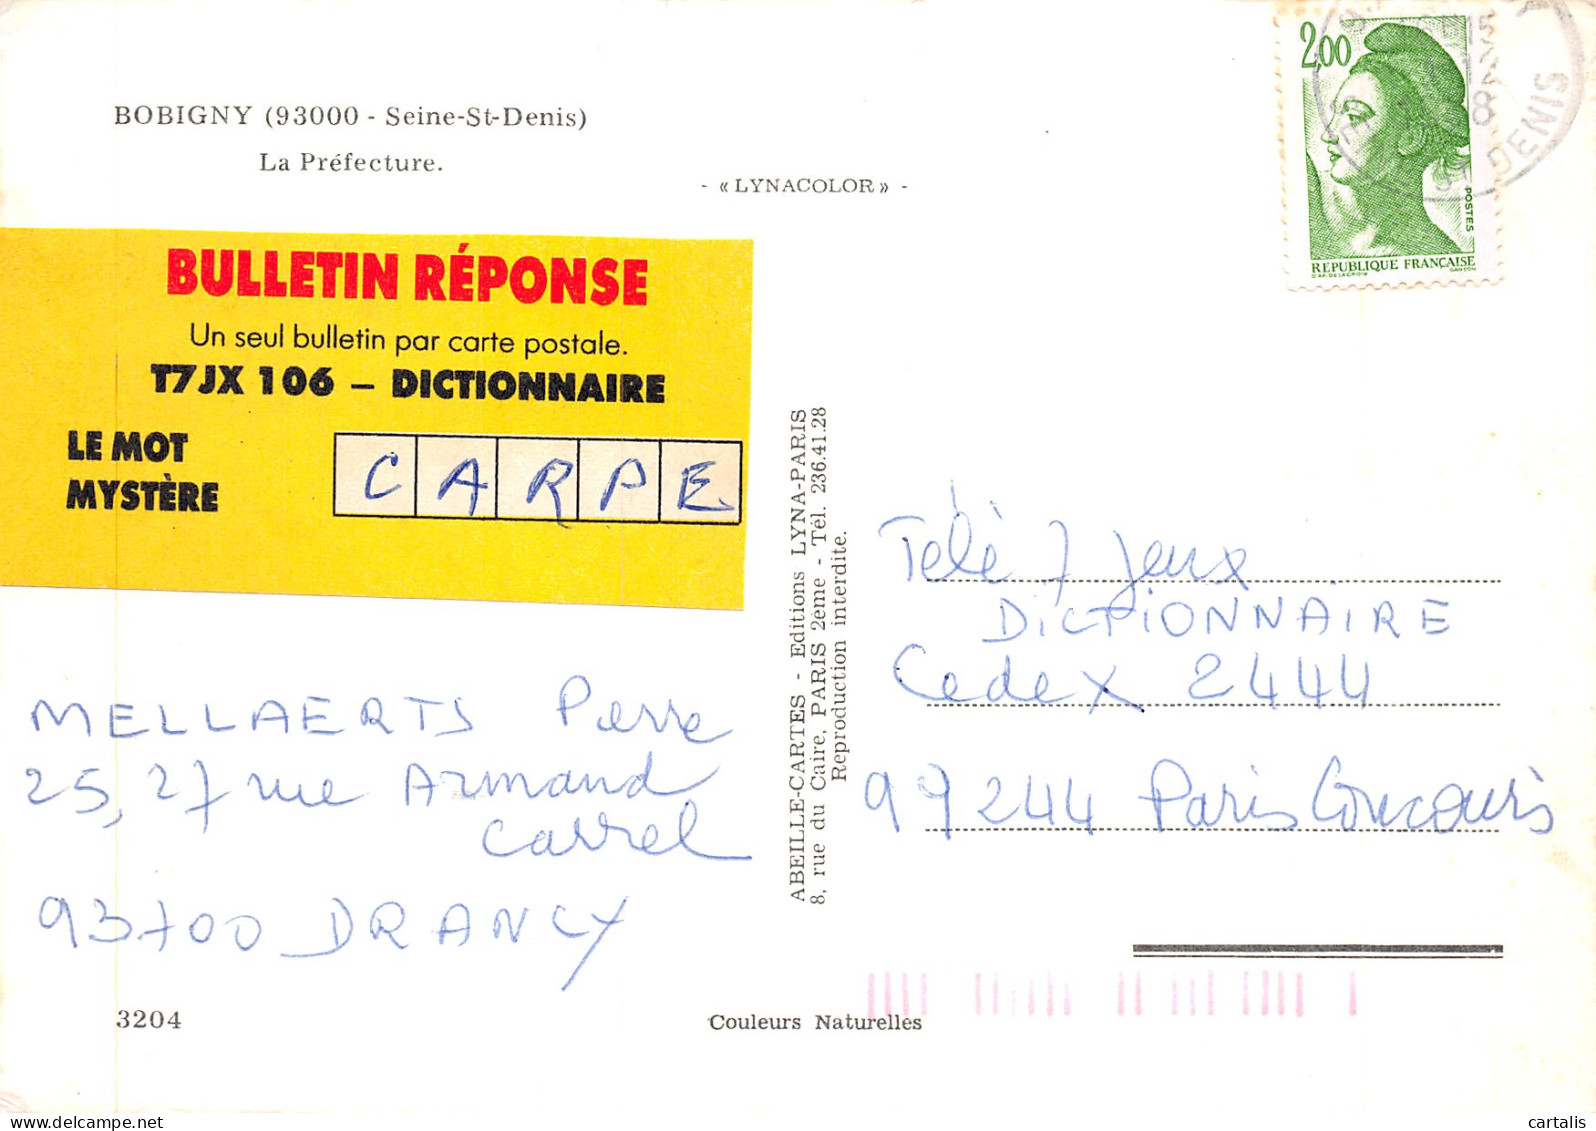 BOBIGNY (93000 - Seine-St-Denis)
La Préfecture.
- « LYNACOLOR » -
2,00
POSTES
REPUBLIQUE FRANÇAISE
D'AP. DELACROIX GANDON
ST DENIS
BULLETIN RÉPONSE
Un seul bulletin par carte postale.
T7JX 106 – DICTIONNAIRE
LE MOT
MYSTÈRE
CARPE
MELLAERTS Pierre
25, 27 rue Armand
Carrel
93700 DRANCY
3204
ABEILLE-CARTES - Editions LYNA-PARIS
8, rue du Caire, PARIS 2ème - Tél. 236.41.28
Reproduction interdite.
Télé 7 Jeux
DICTIONNAIRE
Cedex 2444
99244 Paris Concours
Couleurs Naturelles
www.delcampe.net
cartalis